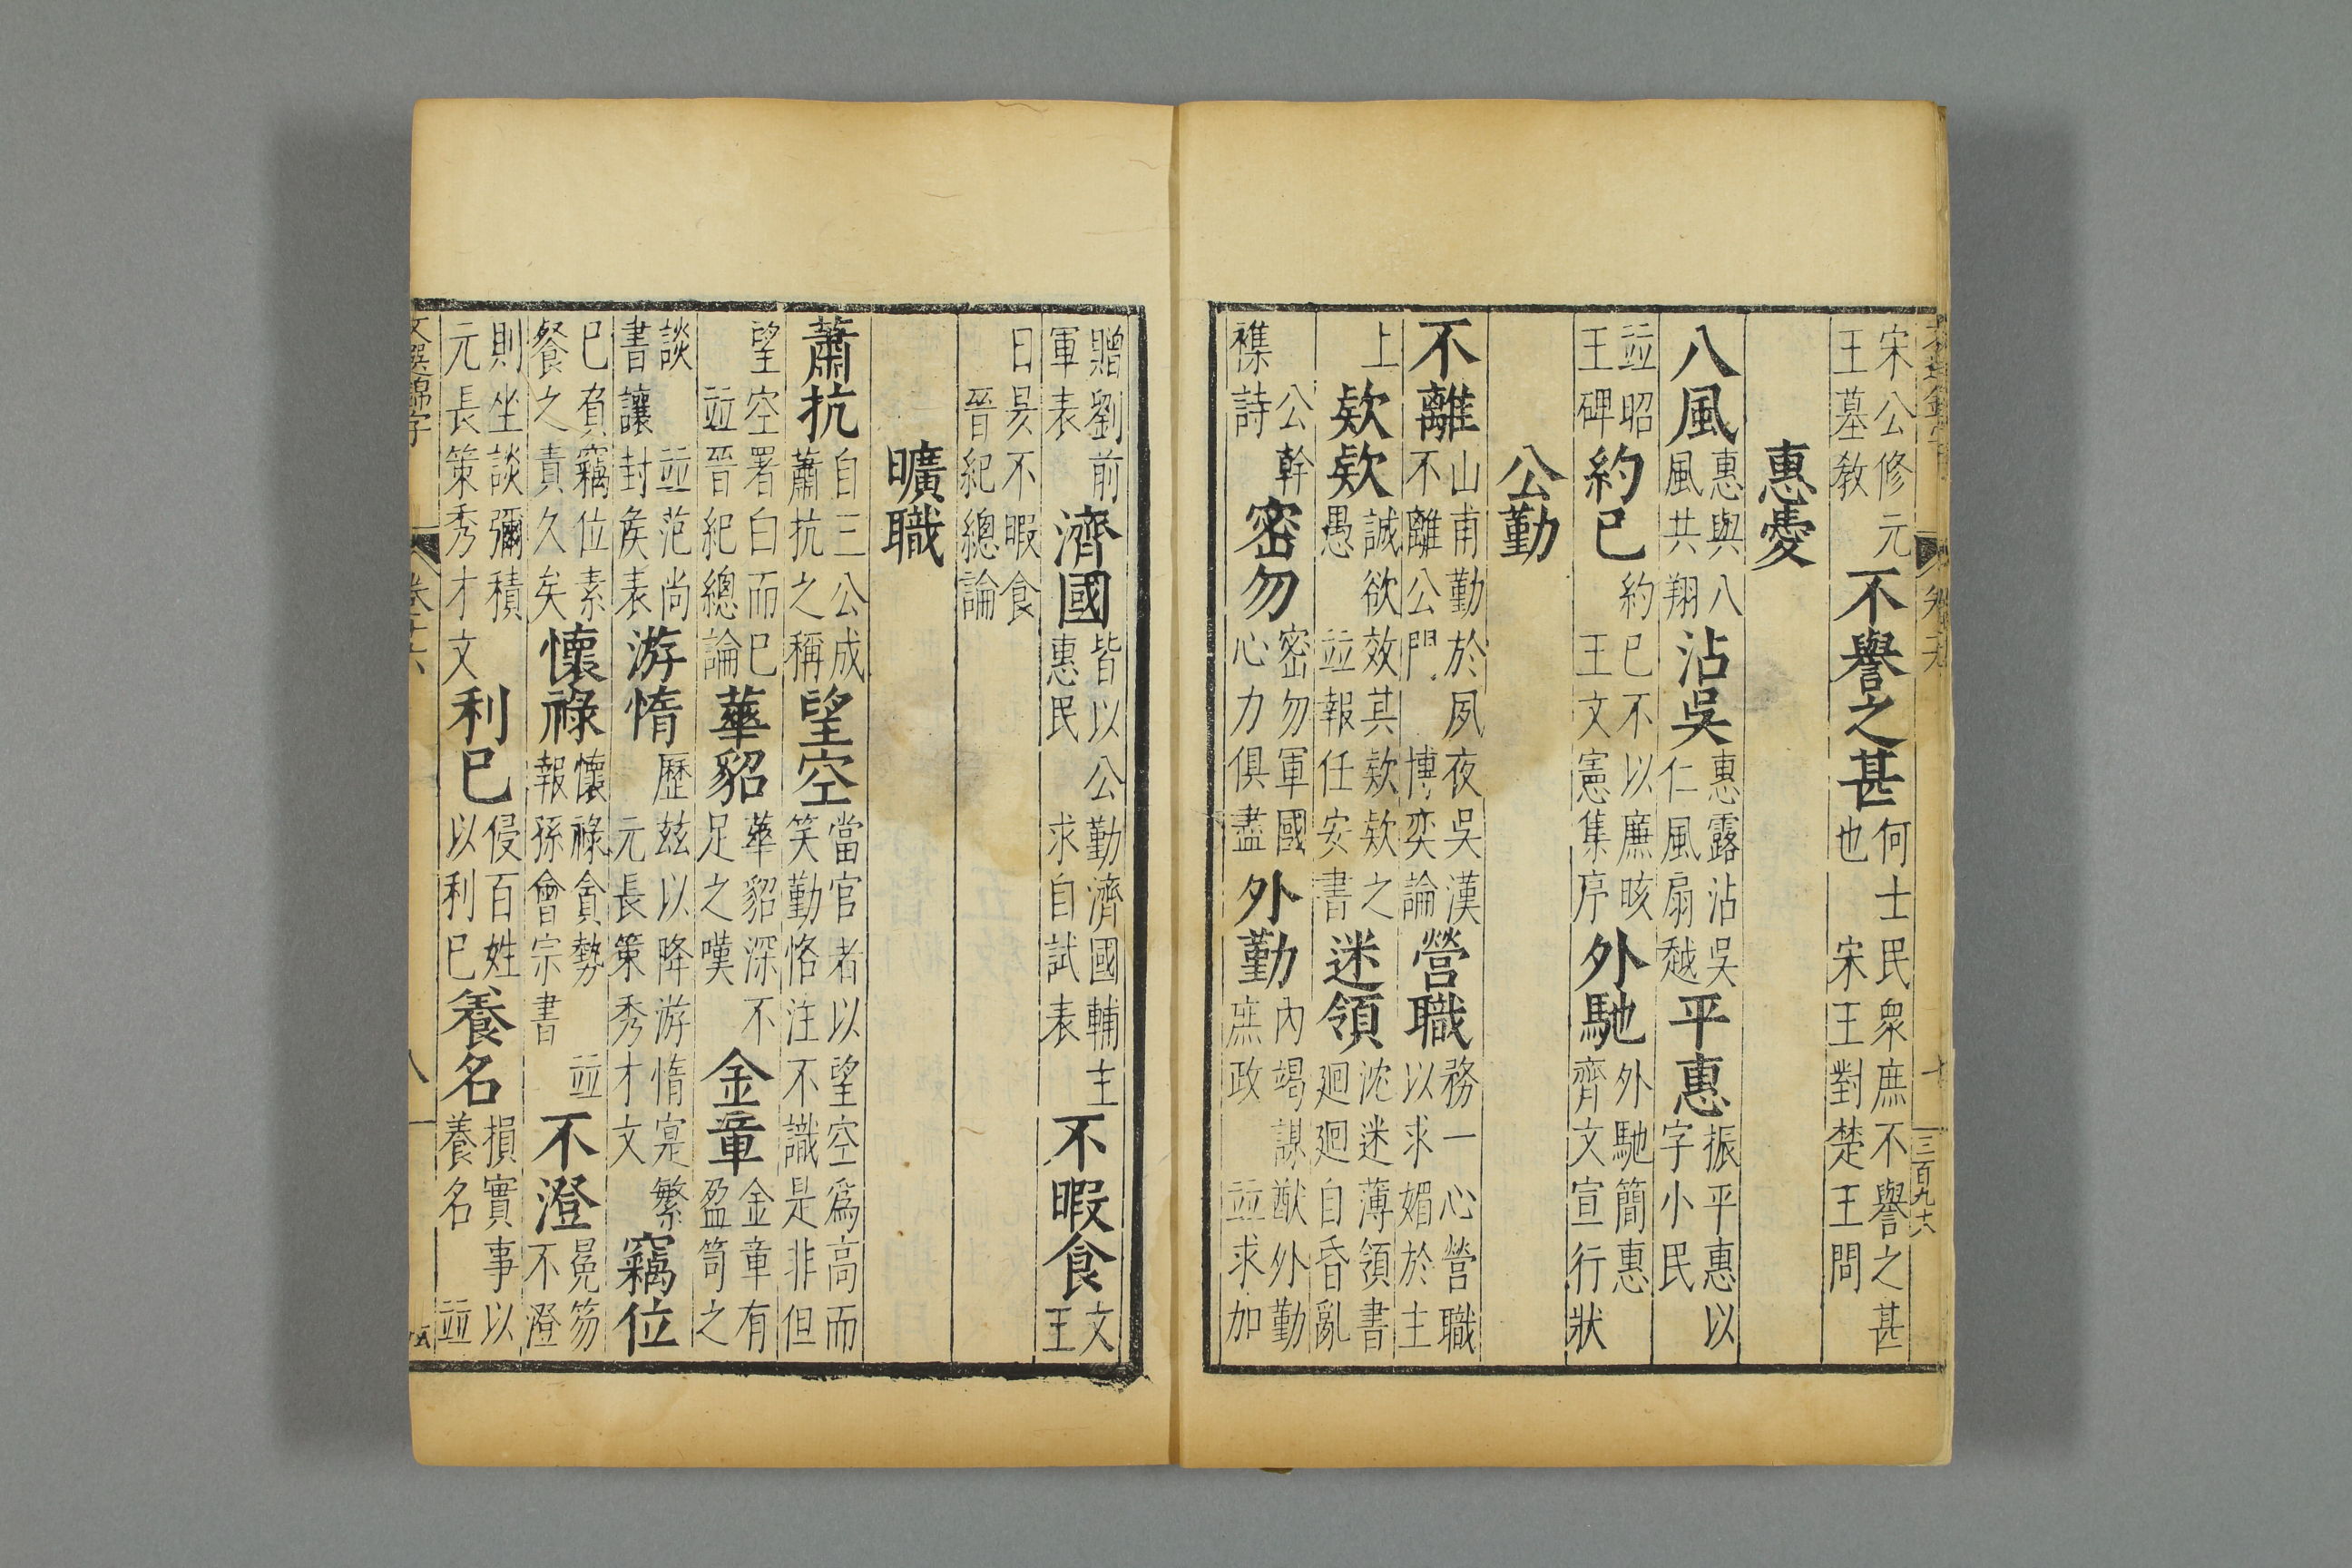 宋公修元王墓教 不譽之甚 何士民衆庶不譽之甚也 宋王對楚王問
惠愛
八風 惠與八風共翔 沾吳 惠露沾吳仁風扇越 平惠 振平惠以字小民
並昭王碑 約已 約已不以廉畯王文憲集序 外馳 外馳簡惠齊文宣行狀
公勤
不離 山甫勤於夙夜吳漢不離公門 博奕論 營職 務一心營職以求媚於主
上 欵欵 誠欲效其欵欵之愚 並報任安書 迷領 沈迷薄領書廻廻自昏亂
公幹襍詩 密勿 密勿軍國心力俱盡 外勤 內竭謀猷外勤庶政 並求加
贈劉前軍表 濟國 皆以公勤濟國輔主惠民 求自試表 不暇食 文王
日昃不暇食 晉紀總論
曠職
蕭抗 自三公成蕭抗之稱 望空 當官者以望空爲高而笑勤恪 注不識是非但
望空署白而已 並晉紀總論 華貂 華貂深不足之嘆 金章 金章有盈笥之
談 並范尚書讓封矦表 游惰 歷玆以降游惰寔繁 元長策秀才文 竊位
已負竊位素餐之責久矣 懷祿 懷祿貪勢 並報孫會宗書 不澄 冕笏不澄
則坐談彌積 元長策秀才文 利已 侵百姓以利已 養名 損實事以養名 並
文選錦字
三百九十六